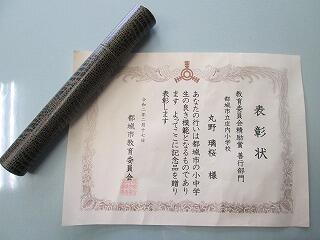 表彰状
教育委員会精励賞 善行部門
都城市立庄内小学校
丸野 璃桜 様
あなたの行いは都城市の小中学
生の良き模範となるものであり
ます よってここに記念品を贈り
表彰します
令和二年二月十七日
都城市教育委員会